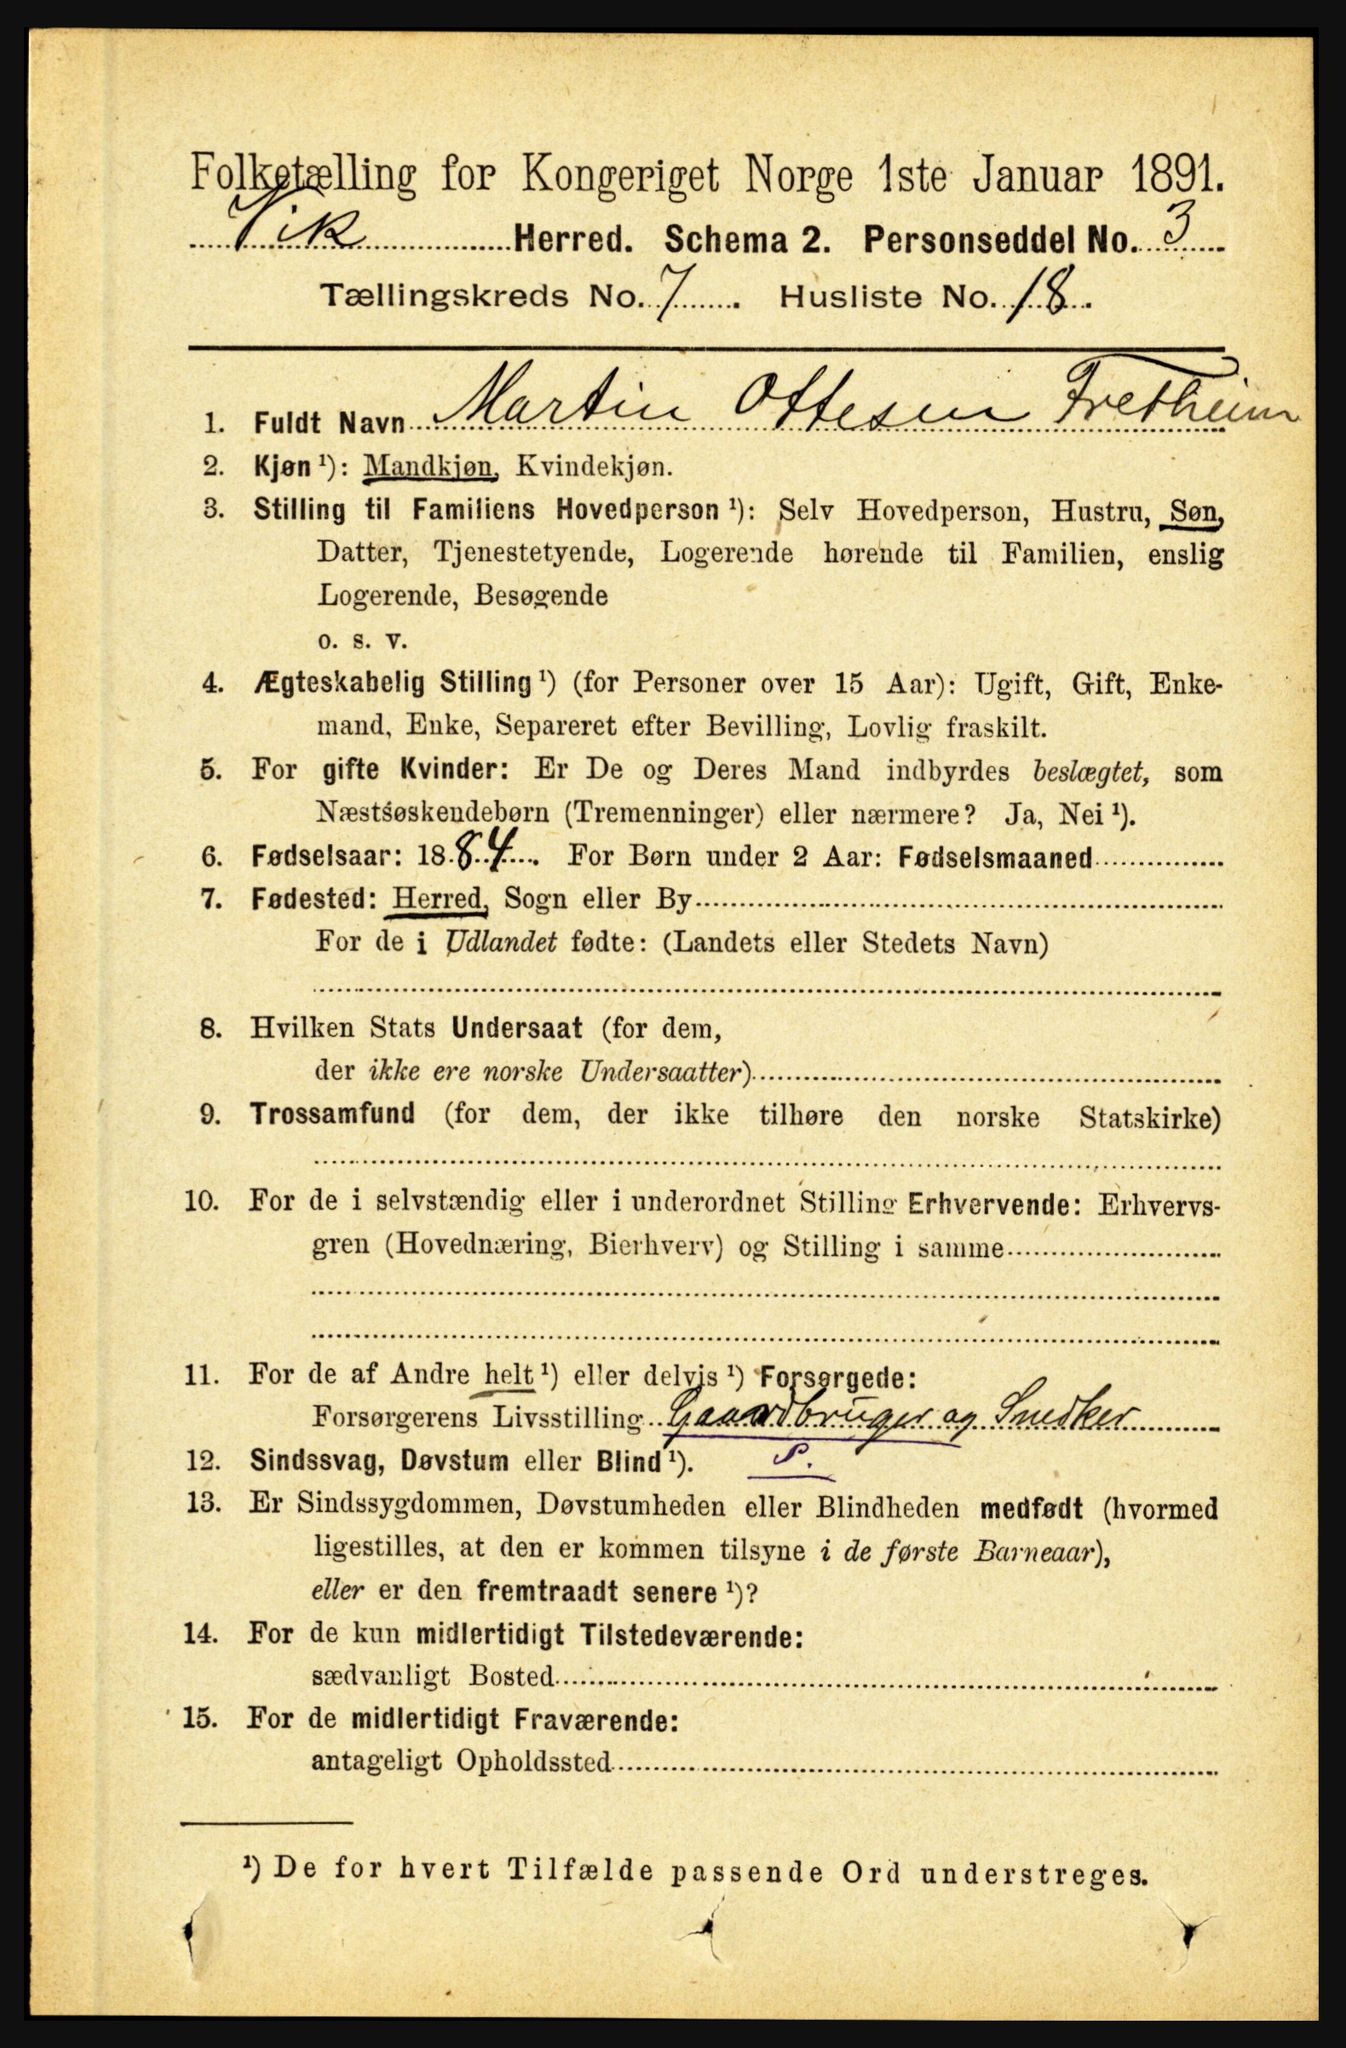 Folketælling for Kongeriget Norge 1ste Januar 1891.
Vik Herred. Schema 2. Personseddel No. 3
Tællingskreds No. 7. Husliste No. 18.
1. Fuldt Navn Martin Ottesen Fretheim
2. Kjøn¹): Mandkjøn, Kvindekjøn.
3. Stilling til Familiens Hovedperson¹): Selv Hovedperson, Hustru, Søn,
Datter, Tjenestetyende, Logerende hørende til Familien, enslig
Logerende, Besøgende
o. s. v.
4. Ægteskabelig Stilling¹) (for Personer over 15 Aar): Ugift, Gift, Enke-
mand, Enke, Separeret efter Bevilling, Lovlig fraskilt.
5. For gifte Kvinder: Er De og Deres Mand indbyrdes beslægtet, som
Næstsøskendebørn (Tremenninger) eller nærmere? Ja, Nei¹).
6. Fødselsaar: 1884. For Børn under 2 Aar: Fødselsmaaned
7. Fødested: Herred, Sogn eller By
For de i Udlandet fødte: (Landets eller Stedets Navn)
8. Hvilken Stats Undersaat (for dem,
der ikke ere norske Undersaatter)
9. Trossamfund (for dem, der ikke tilhøre den norske Statskirke)
10. For de i selvstændig eller i underordnet Stilling Erhvervende: Erhvervs-
gren (Hovednæring, Bierhverv) og Stilling i samme
11. For de af Andre helt¹) eller delvis¹) Forsørgede:
Forsørgerens Livsstilling Gaardbruger og Snedker
12. Sindssvag, Døvstum eller Blind¹). S.
13. Er Sindssygdommen, Døvstumheden eller Blindheden medfødt (hvormed
ligestilles, at den er kommen tilsyne i de første Barneaar),
eller er den fremtraadt senere¹)?
14. For de kun midlertidigt Tilstedeværende:
sædvanligt Bosted
15. For de midlertidigt Fraværende:
antageligt Opholdssted
¹) De for hvert Tilfælde passende Ord understreges.